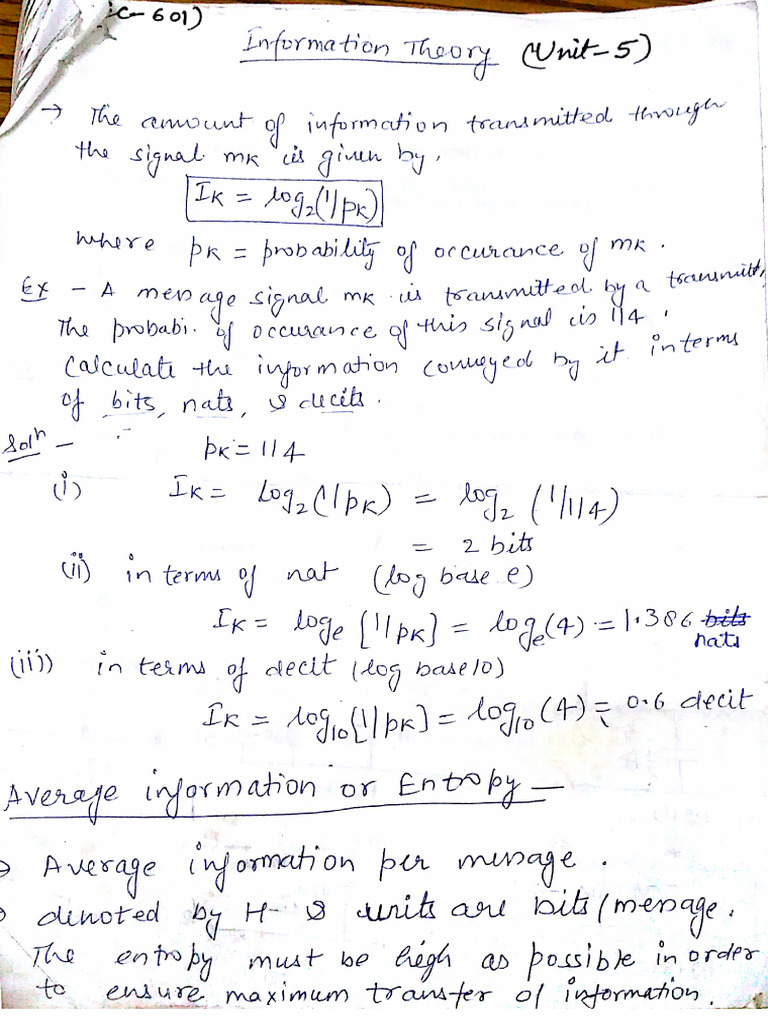 C-601)
Information Theory (Unit-5)
→ The amount of information transmitted through
the signal mK is given by,
IK = log2(1/pK)
where pK = probability of occurance of mK.
Ex - A message signal mK is transmitted by a transmitt,
The probabi. of occurance of this signal is 1/4.
Calculate the information conveyed by it interms
of bits, nats, & decits.
Solⁿ - pK = 1/4
(i) IK = log2(1/pK) = log2 (1/1/4)
= 2 bits
(ii) in terms of nat (log base e)
IK = loge [1/pK] = loge(4) = 1.386 bits
nats
(iii) in terms of decit (log base 10)
IK = log10[1/pK] = log10(4) = 0.6 decit
Average information or Entropy —
Average information per message.
denoted by H & units are bits/message.
The entropy must be high as possible in order
to ensure maximum transfer of information.